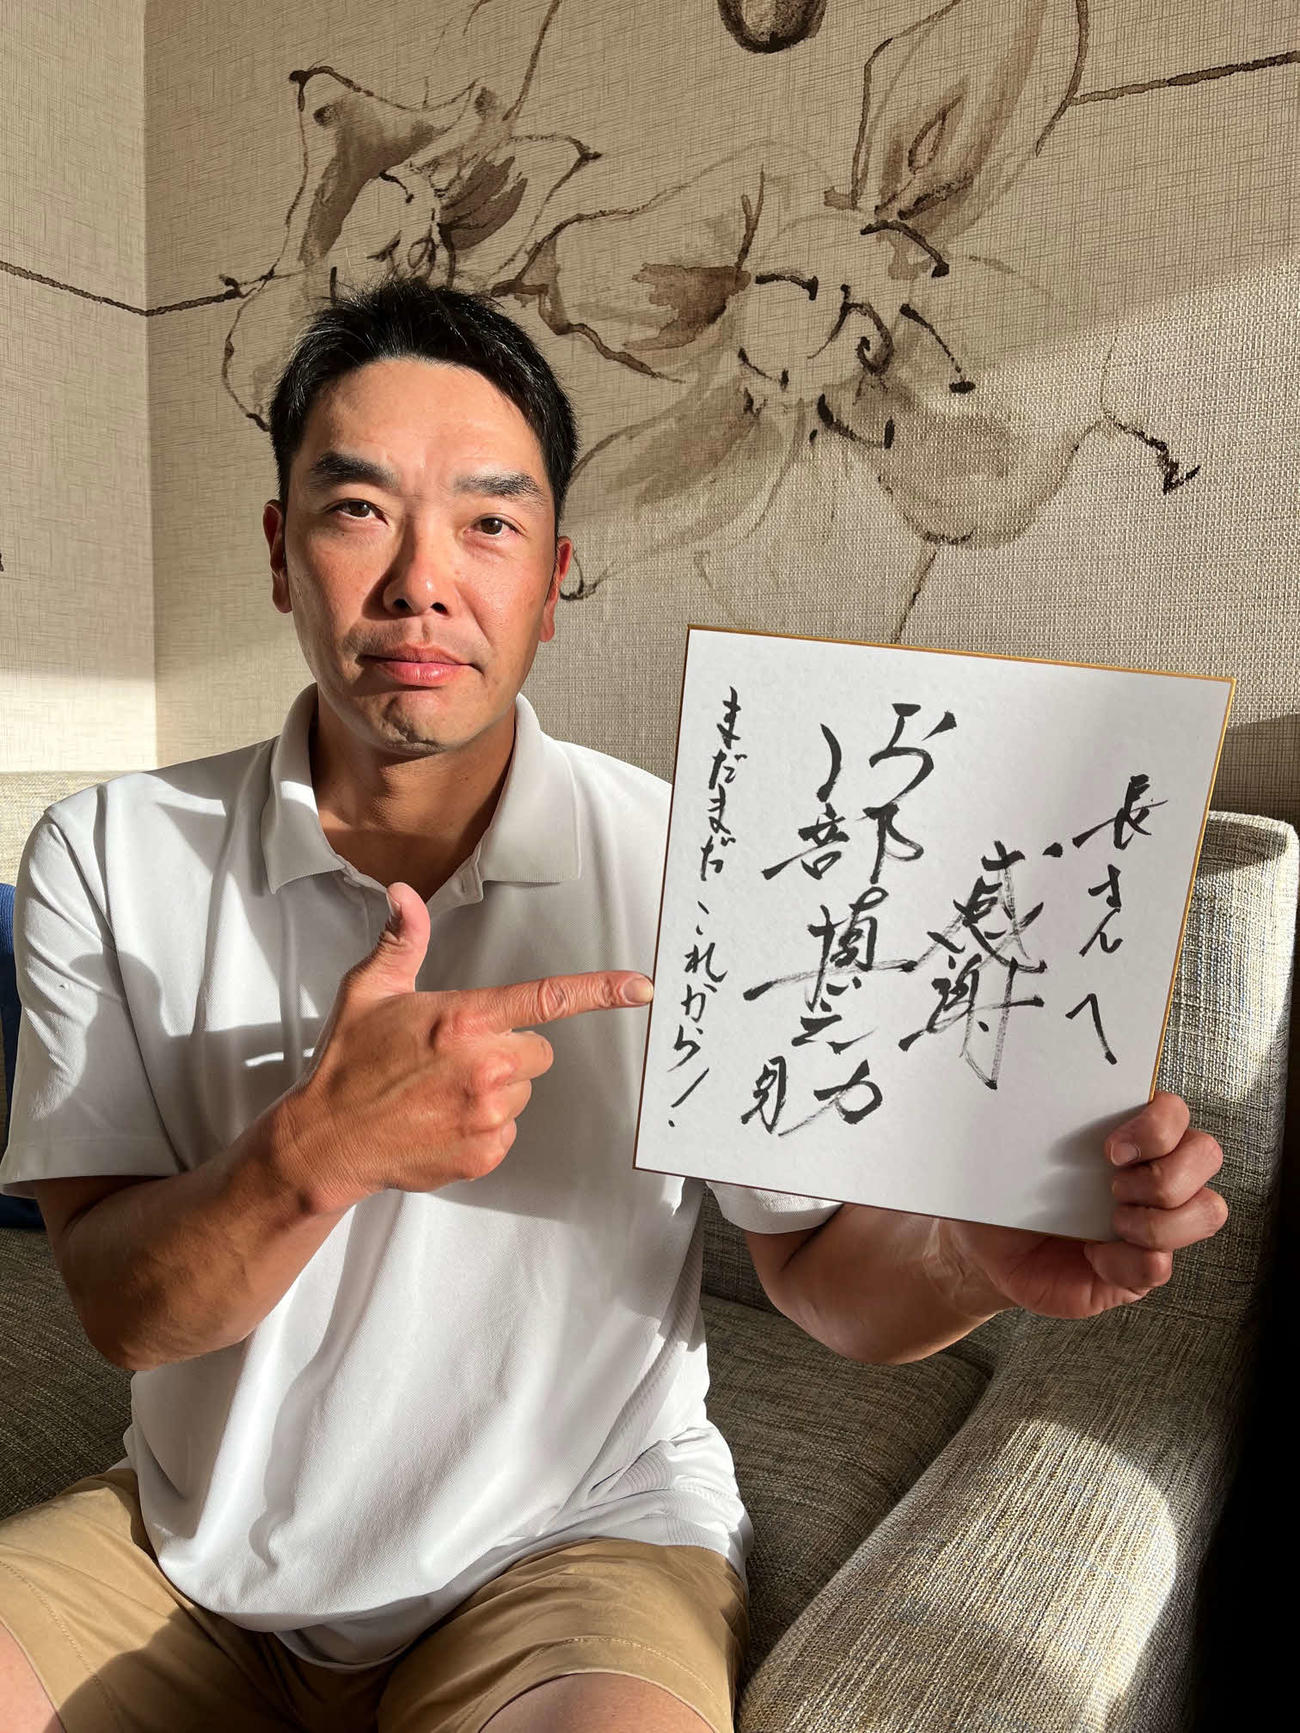 長さんへ
感謝
阿部慎之助
まだまだ これから!